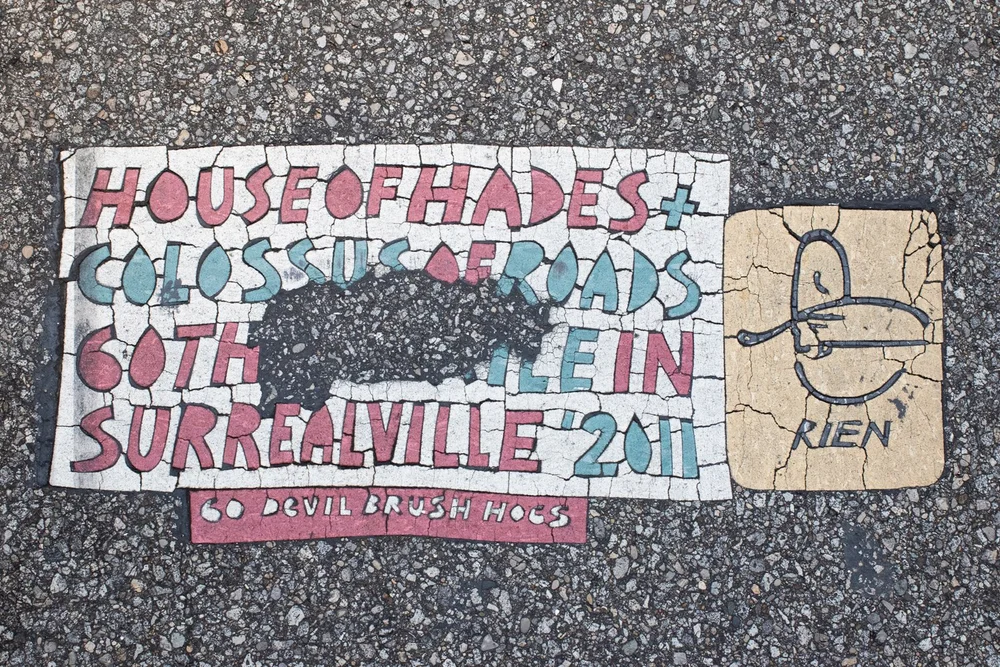 HOUSE OF HADES +
COLOSSUS OF ROADS
GOTH ILE IN
SURREALVILLE '2011
GO DEVIL BRUSH HOGS
RIEN